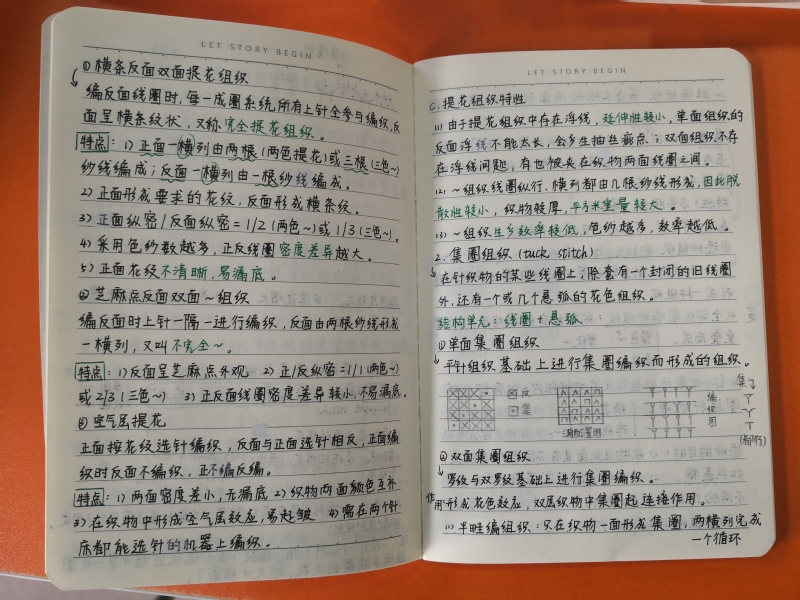 LET STORY BEGIN
① 横条反面双面提花组织
编反面线圈时,每一成圈系统所有上针全参与编织,反
面呈横条纹状,又称完全提花组织。
特点:1) 正面一横列由两根(两色提花)或三根(三色~)
纱线编成;反面一横列由一根纱线编成。
2) 正面形成要求的花纹,反面形成横条纹。
3) 正面纵密/反面纵密=1/2(两色~)或1/3(三色~)。
4) 采用色纱数越多,正反线圈密度差异越大。
5) 正面花纹不清晰,易漏底。
② 芝麻点反面双面~组织
编反面时上针一隔一进行编织,反面由两根纱线形成
一横列,又叫不完全~。
特点:1) 反面呈芝麻点外观 2) 正/反纵密=1/1(两色~)
或2/3(三色~) 3) 正反面线圈密度差异较小,不易漏底。
③ 空气层提花
正面按花纹选针编织,反面与正面选针相反,正面编
织时反面不编织,正不编反编。
特点:1) 两面密度差小,无漏底 2) 织物两面颜色互补
3) 在织物中形成空气层效应,易起皱 4) 需在两个针
床都能选针的机器上编织。
LET STORY BEGIN
C. 提花组织特性
(1) 由于提花组织中存在浮线,延伸性较小,单面组织的
反面浮线不能太长,会产生抽丝疵点;双面组织不存
在浮线问题,有也被夹在织物两面线圈之间。
(2) ~组织线圈纵行、横列都由几根纱线形成,因此脱
散性较小,织物较厚,平方米重量较大。
(3) ~组织生产效率较低;色纱越多,效率越低。
2. 集圈组织(tuck stitch)
在针织物的某些线圈上,除套有一个封闭的旧线圈
外,还有一个或几个悬弧的花色组织。
结构单元:线圈+悬弧
① 单面集圈组织
平针组织基础上进行集圈编织而形成的组织。
反
集
意匠图
编织图
集
② 双面集圈组织
罗纹与双罗纹基础上进行集圈编织。
作用:形成花色效应,双层织物中集圈起连接作用。
(1) 半畦编组织:只在织物一面形成集圈,两横列完成
一个循环